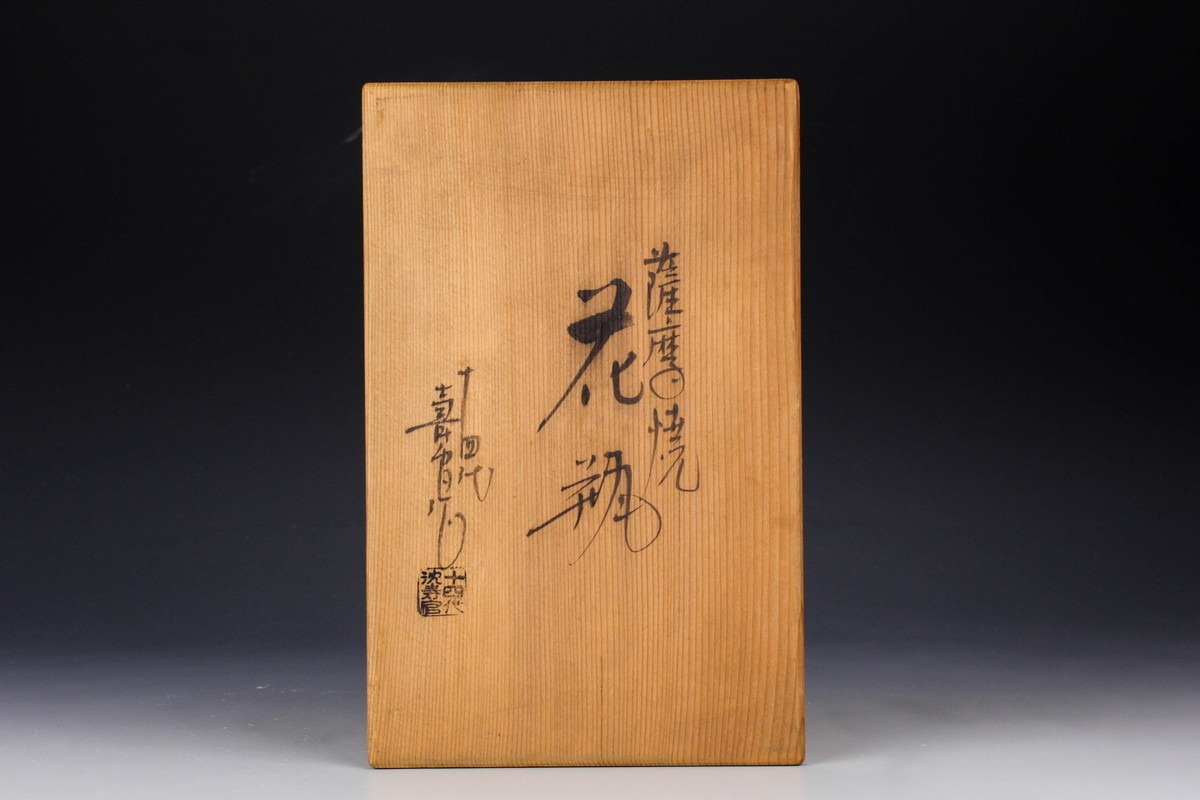 薩摩焼
花瓶
十四代
壽官作
十四代
沈壽官